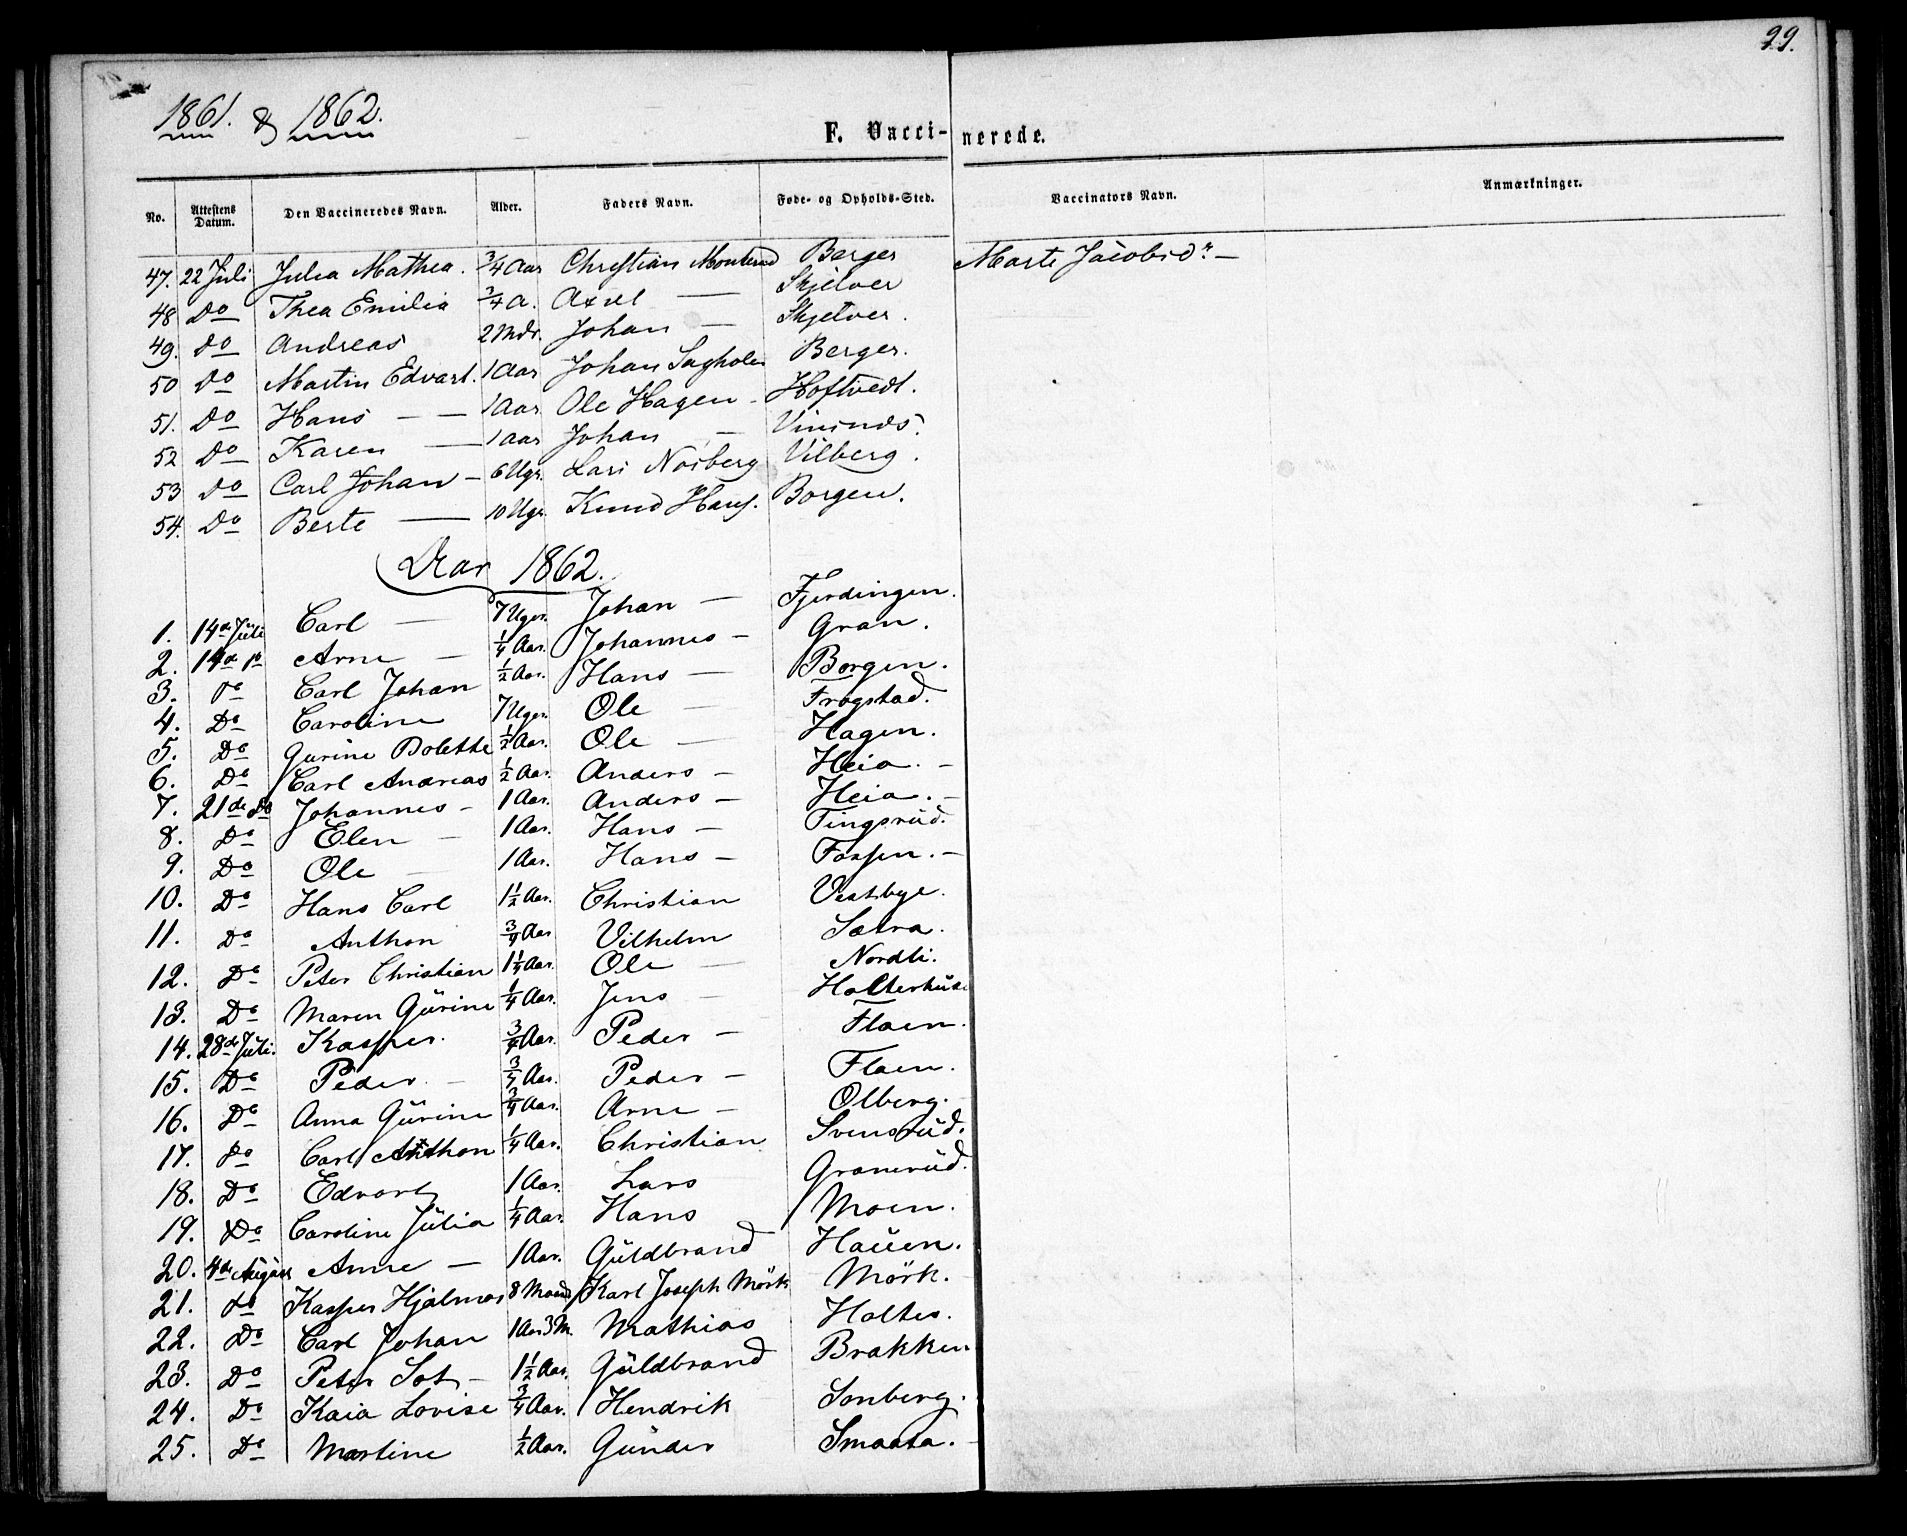 29.
1861. & 1862.
F. Vaccinerede.
No. Attestens Datum. Den Vaccineredes Navn. Alder. Faders Navn. Føde- og Opholds-Sted. Vaccinators Navn. Anmærkninger.
47. 22 Juli Julea Mathea. 3/4 Aar Christian Berger Marte Jacobsdr. —
48 Do Thea Emilia 3/4 A. Axel — Skjelver
49. Do Andreas 2 Mdr. Johan — Skjelver.
50 Do Martin Edvart. 1 Aar Johan Sagholen Berger.
51. Do Hans — — 1 Aar Ole Hagen - Hoftvedt.
52 Do Karen — 1 Aar Johan —
53 Do Carl Johan — 6 Ugr. Lars Noiberg Vilberg.
54. Do Berte — 10 Ugr. Knud Hans. Borgen.
Aar 1862.
1. 14de Juli Carl — 7 Uger. Johan — Fjerdingen.
2. 14de Do Arne — 1/4 Aar. Johannes — Gran.
3. Do Carl Johan 1/2 Aar. Hans — Borgen.
4. Do Caroline 7 Uger. Ole — Frogstad.
5. Do Gurine Bolette 1/2 Aar. Ole — Hagen.
6. Do Carl Andreas 1/2 Aar. Anders — Heia. —
7. 21de Do Johannes - 1 Aar. Anders — Heia. —
8. Do Elen — 1 Aar. Hans — Tingsrüd.
9. Do Ole — 1 Aar. Hans — Fossen. —
10. Do Hans Carl 1 1/2 Aar. Christian Vestbye.
11. Do Anthon 3/4 Aar Vilhelm Sætra.
12. Do Peter Christian 1 1/4 Aar. Ole — Nordli.
13. Do Maren Gürine 1/4 Aar. Jens — Holterhüse
14. 28de Juli. Kasper. 3/4 Aar. Peder — Floen.
15. Do Peder. — 3/4 Aar. Peder — Floen.
16. Do Anna Gürine 3/4 Aar. Arne — Olberg.
17. Do Carl Anthon 1/4 Aar. Christian Svensrüd.
18. Do Edvart 1 Aar. Lars Granerüd.
19. Do Caroline Jülia 1/4 Aar. Hans Moen.
20. 4de August Anne — 1 Aar. Güldbrand Haüen.
21. Do Kasper Hjalmar 8 Maan Karl Joseph Mörk Mörk.
22. Do Carl Johan 1 Aar 3 M. Mathias Holter.
23. Do Peter — 1 1/2 Aar. Güldbrand Brakken
24. Do Kaia Lovise 3/4 Aar. Hendrik Sonberg.
25. Do Martine 1/2 Aar. Günder Smaata.